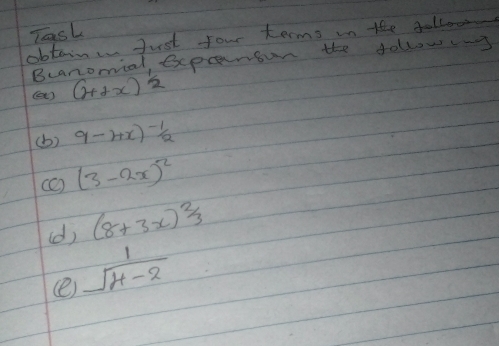 Task
obtain in just four terms in the
Binomial Expression the following
(a) (1+2x)^½
(b) 9-4x)^-½
(c) (3-2x)^-2
(d) (8+3x)^⅔
(e) 1/√4-2